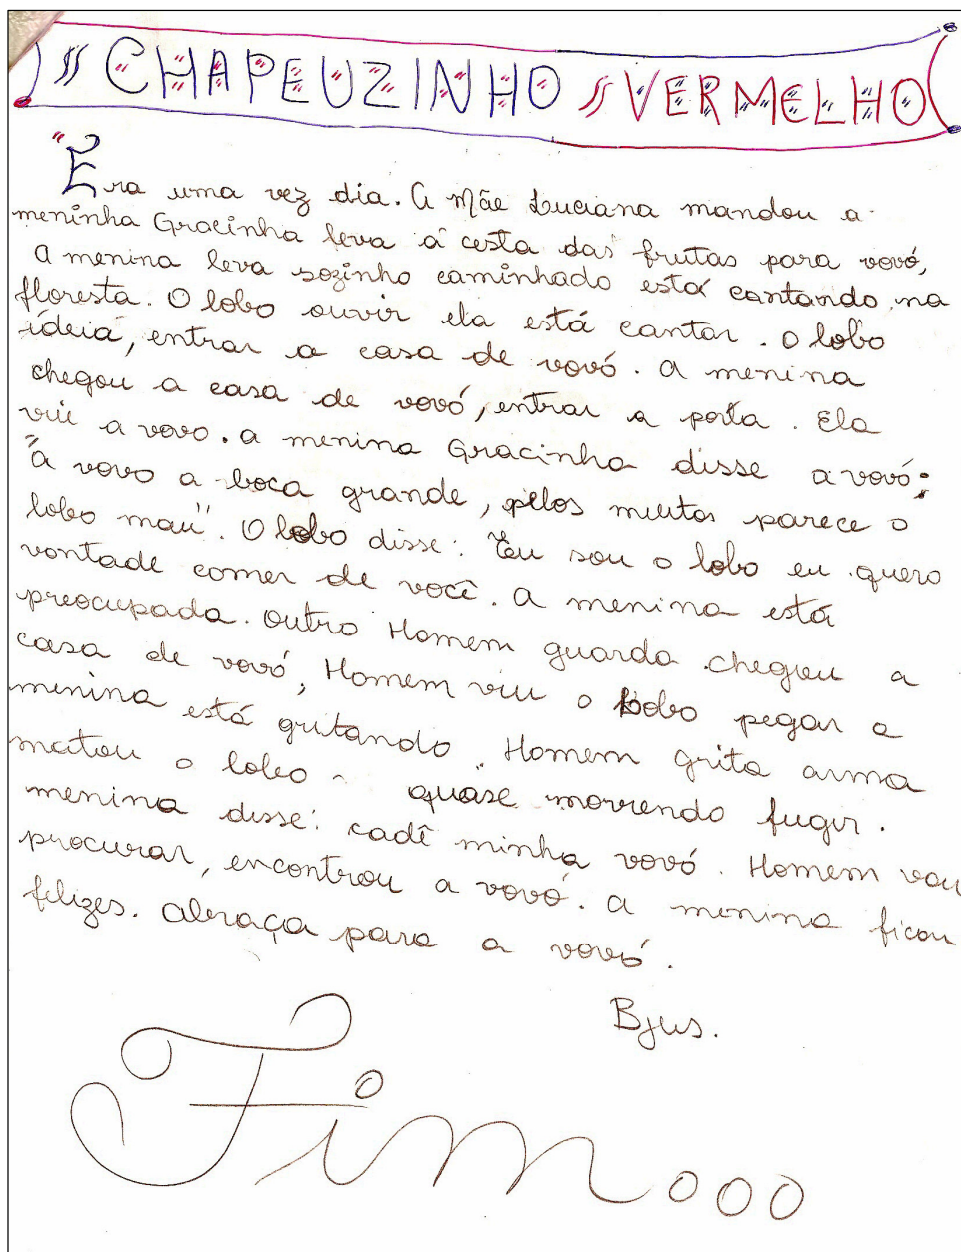 CHAPEUZINHO VERMELHO
"Era uma vez dia. A Mãe Luciana mandou a
meninha Gracinha leva á cesta das frutas para vovó,
A menina leva sozinho caminhado está cantando na
floresta. O lobo ouvir ela está cantar. O lobo
idéia, entrar a casa de vovó. A menina
chegou a casa de vovó, entrar a porta. Ela
viu a vovo. a menina Gracinha disse a vovó:
"a vovo a boca grande, pelos muitos parece o
lobo mau". O lobo disse: Eu sou o lobo eu quero
vontade comer de você. A menina está
preocupada. Outro Homem guarda chegou a
casa de vovó, Homem viu o lobo pegar a
menina está gritando. Homem grita arma
matou o lobo quase morrendo fugir.
menina disse: cadê minha vovó. Homem vou
procurar, encontrou a vovó. A menina ficou
felizes. Abraça para a vovó.
Bjus.
Fim...